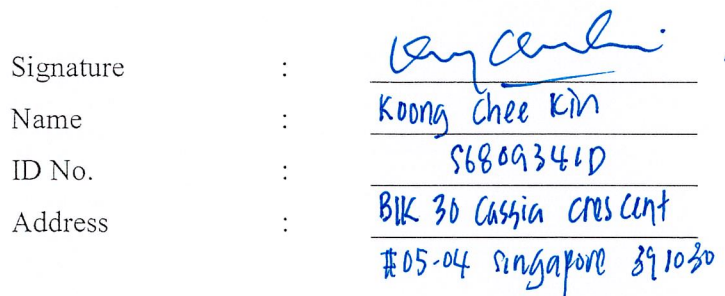 Signature :
Name : Koong Chee Kin
ID No. : S6809341D
Address : Blk 30 Cassia Crescent
#05-04 Singapore 391030